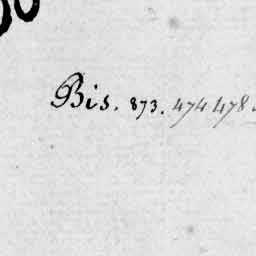 Bis. 873. 474 478.